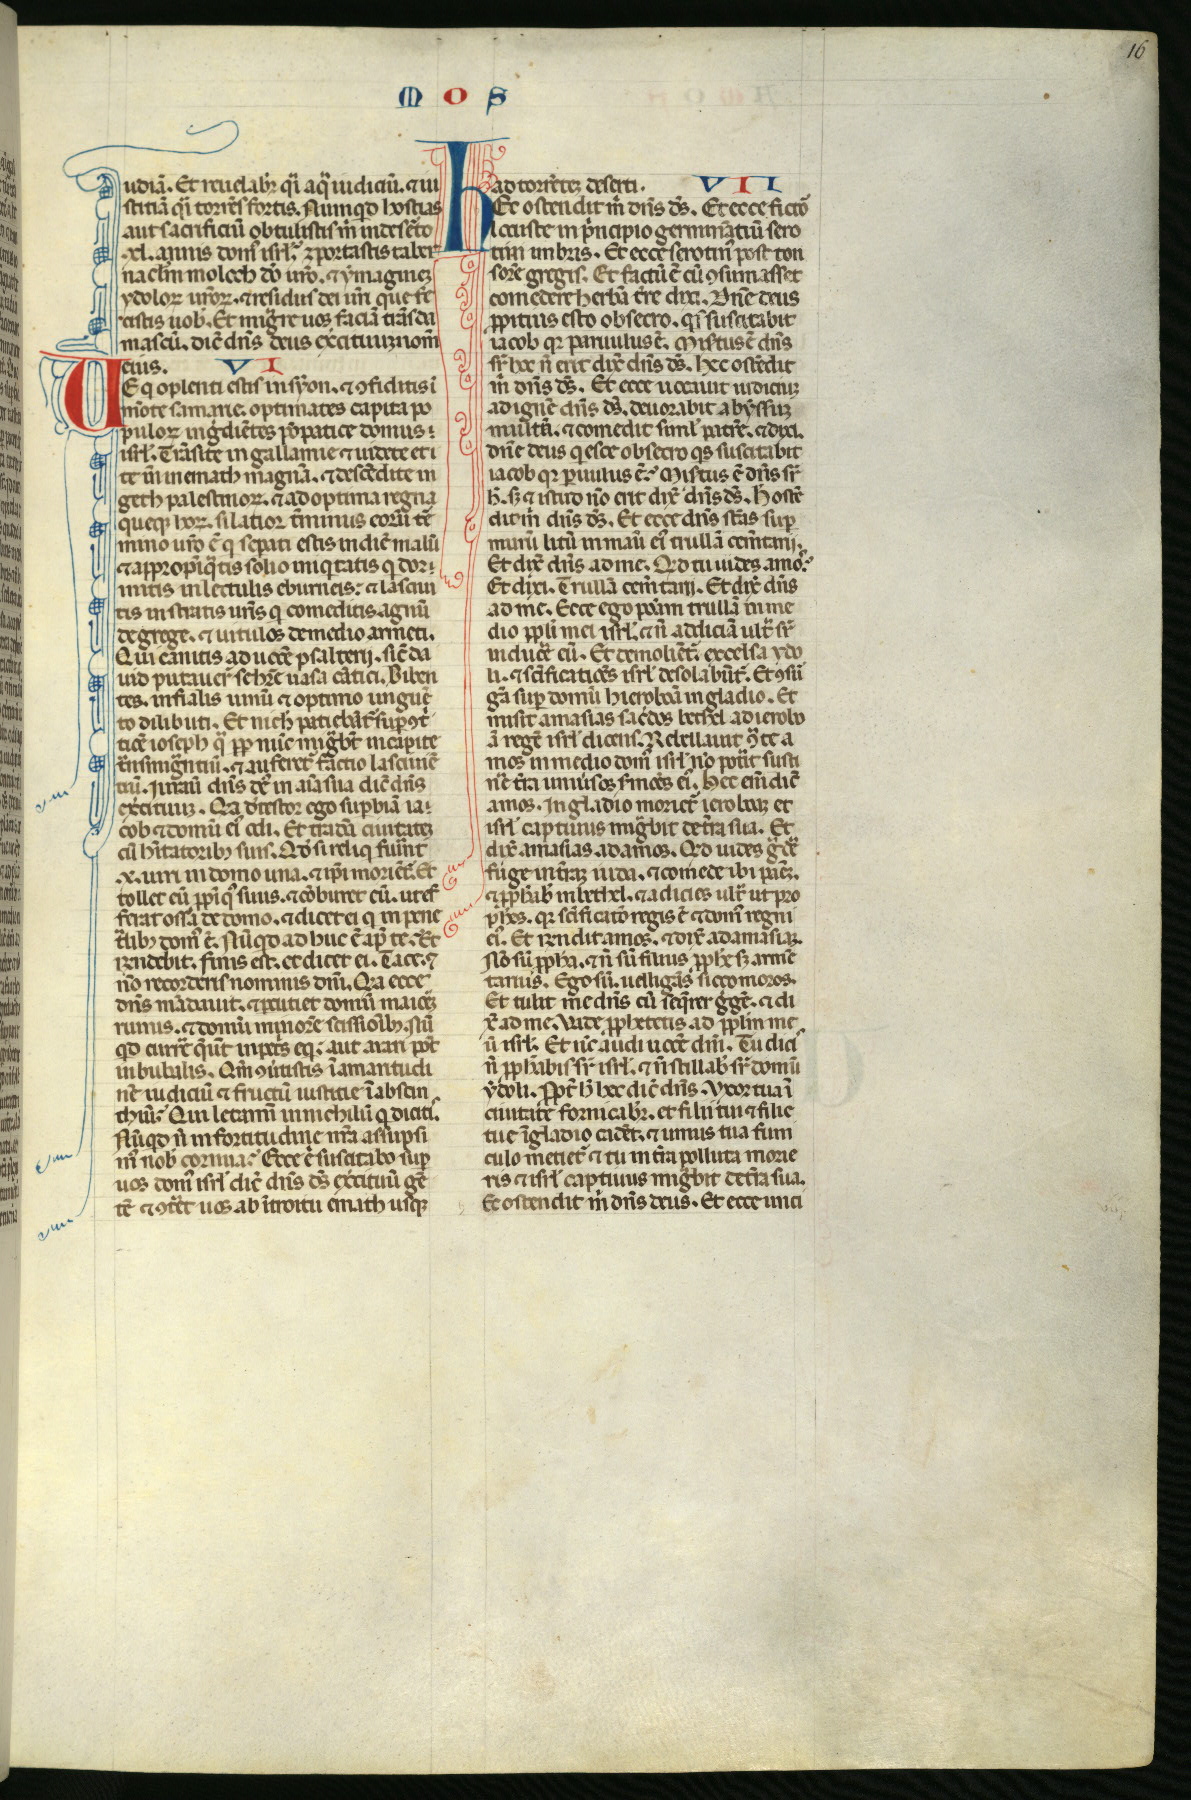 16
MOS
udiā. Et reuelabr̄ q̄i aq̄ iudiciū. ⁊ iu
stitiā q̄i torrēs fortis. Nunqd hostias
aut sacrificiū obtulistis m̄ in deserto
.xl. annis dom' isrl'. ⁊ portastis taber
nac̄lm moloch dō uro. ⁊ ymaginez
ydoloꝝ uroꝝ. ⁊ residus dei ur̄i que fe
cistis uob̄. Et migr̄e uos faciā trās da
mascū. dic̄ dn̄s deus exc̄ituū nom̄
eius. VI
Ue q oplenti estis in syon. ⁊ ꝯfiditis ī
mōte samarie. optimates capita po
puloꝝ ingdiētes pōpatice domus
isrl'. Trāsite in gallamie ⁊ uidete et i
te m̄ in emath magnā. ⁊ descēdite in
geth palestinoꝝ. ⁊ ad optima regna
queqꝫ hoꝝ. si latior t̄minus eorū t̄e
mino uro ē q sepati estis in diē malū
⁊ appropīq̄tis solio iniq̄tatis q dor
mitis in lectulis eburneis: ⁊ lasciui
tis in stratis ur̄is q comeditis agnū
de grege. ⁊ uitulos de medio armēti.
Qui canitis ad uocē psalterij. sic̄ da
uid putauer̄ se hr̄e uasa cātici. Biben
tes in fialis uinū ⁊ optimo ungue
to dilibuti. Et nich̄ patiebāt̄ sup ꝯt̄
tioē ioseph q̄ pp nūc migbt̄ in capite
t̄nsmigntiū. ⁊ auferet̄ factio lasciuiē
tiū. Iurauit dn̄s dē in aīa sua dic̄ dn̄s
exc̄ituū. Qia detestor ego supbiā ia
cob ⁊ domū ei' odi. Et tradā ciuitatē
cū hītatoribꝫ suis. Qd si reliq fuīt
.x. uiri in domo una. ⁊ ip̄i moriēt̄. Et
tollet eū ppīqꝰ suus. ⁊ cōburet eū. ut ef
ferat ossa de domo. ⁊ dicet ei q in pene
tlibꝫ dom' ē. Nūqd ad huc ē ap̄ te. Et
rn̄debit. finis est. et dicet ei. Tace. ⁊
nō recorderis nominis dn̄i. Qia ecce
dn̄s mādauit. ⁊ pcutiet domū maiorē
ruinis. ⁊ domū minorē scissiōibꝫ. Nū
qd currē quīt in petis eq̄. aut arari pōt
in bubalis. Qm̄ ꝯuītistis ī amaritudi
nē iudiciū ⁊ fructū iustitie ī absin
thiū: Qui letamī in nichilū q dicitis.
Nūqd n̄ in fortitudine nrā assūpsi
m' nob̄ cornua: Ecce ē suscitabo sup
uos dom' isrl' dic̄ dn̄s dš exc̄ituū gē
tē ⁊ ꝯtet uos ab introitu emath usqꝫ
ad torrētē deserti. VII
Hec ostendit m̄ dn̄s dš. Et ecce fictor
locuste in pncipio germinātiū sero
tini imbris. Et ecce serotin' post ton
sorē gregis. Et factū ē cū ꝯsumasset
comedere herbā t̄re dixi. Dn̄e deus
ppitius esto obsecro. qs suscitabit
iacob qr paruulus ē. Misertus ē dn̄s
sr̄ hec n̄ erit dix̄ dn̄s dš. Hec ostēdit
m̄ dn̄s dš. Et ecce uocauit iudiciū
ad ignē dn̄s dš. deuorabit abyssū
multā. ⁊ comedit siml' partē. ⁊ dixi.
Dn̄e deus qesce obsecro qs suscitabit
iacob qr puulus ē: Misertus ē dn̄s sr̄
h̄. sꝫ ⁊ istud nō erit dix̄ dn̄s dš. H̄ ostē
dit m̄ dn̄s dš. Et ecce dn̄s stās sup
murū litū in manu ei' trullā cem̄tarij.
Et dix̄ dn̄s ad me. Qd tu uides amos:
Et dixi. Trullā cem̄tarij. Et dix̄ dn̄s
ad me. Ecce ego ponā trullā in me
dio ppli mei isrl'. ⁊ n̄ adiciā ultr̄ sr̄
inducē eū. Et demolient̄ excelsa ydo
li. ⁊ scīficatioēs isrl' desolabūt̄. Et ꝯsū
gā sup domū hieroboā in gladio. Et
misit amasias sacdos bethel ad ierobo
ā regē isrl' dicens. Rebellauit ꝯt̄ te a
mos in medio dom' isrl' nō potit susti
nē t̄ra uniūsos smōēs ei'. Hec em̄ dic̄
amos. In gladio moriet̄ ieroboā et
isrl' captiuus migbit de t̄ra sua. Et
dix̄ amasias ad amos. Qd uides gdē
fuge in t̄rā iuda. ⁊ comede ibi panē.
⁊ pphabis in bethel. ⁊ adicies ultr̄ ut pro
phes. qr scīficatō regis ē ⁊ dom' regni
ei'. Et rn̄dit amos. ⁊ dix̄ ad amasiā.
Nō sū ppha. ⁊ n̄ sū filius pphe sꝫ armē
tarius. Ego sū uelligās siccomoros.
Et tulit me dn̄s cū seqrer gge. ⁊ di
x̄ ad me. Vade pphetetis ad pplm me
ū isrl'. Et nūc audi uocē dn̄i. Tu dicis
n̄ pphabis sr̄ isrl'. ⁊ n̄ stillab' sr̄ domū
ydoli. Ppt̄ h̄ hec dic̄ dn̄s. Vxor tua ī
ciuitate fornicabr̄. et filii tui ⁊ filie
tue ī gladio cadēt. ⁊ umus tua funi
culo metiet̄ ⁊ tu in t̄ra polluta morie
ris ⁊ isrl' captiuus migbit de t̄ra sua.
Ec ostendit m̄ dn̄s deus. Et ecce unci